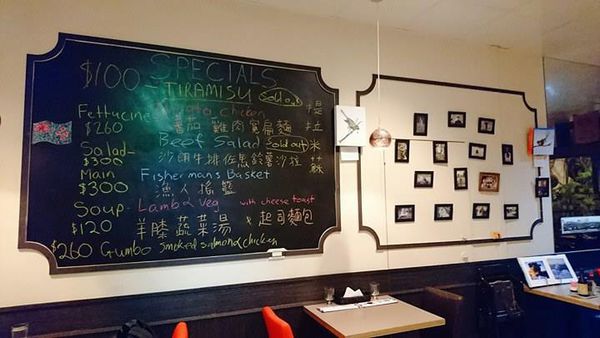 SPECIALS
$100 - TIRAMISU sold out 提拉米蘇
Fettucine Pesto chicken
$260 番茄雞肉寬扁麵
Salad - Beef Salad sold out
$300 沙朗牛排佐馬鈴薯沙拉
Main Fisherman's Basket
$300 漁人搖籃
Soup - Lamb & Veg with cheese toast
$120 羊膝蔬菜湯 & 起司麵包
$260 Gumbo smoked salmon & chicken